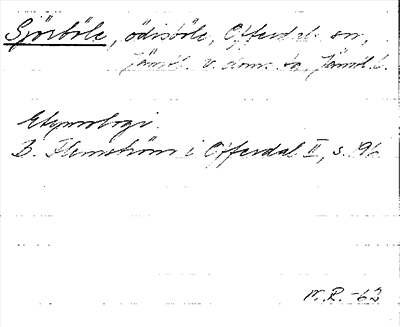 Sjörböle, ödesböle, Offerdals sn,
Jämtl. v. doms. sg, Jämtl. l.
Etymologi.
B. Flemström i Offerdal II, s. 96.
M.R. -63